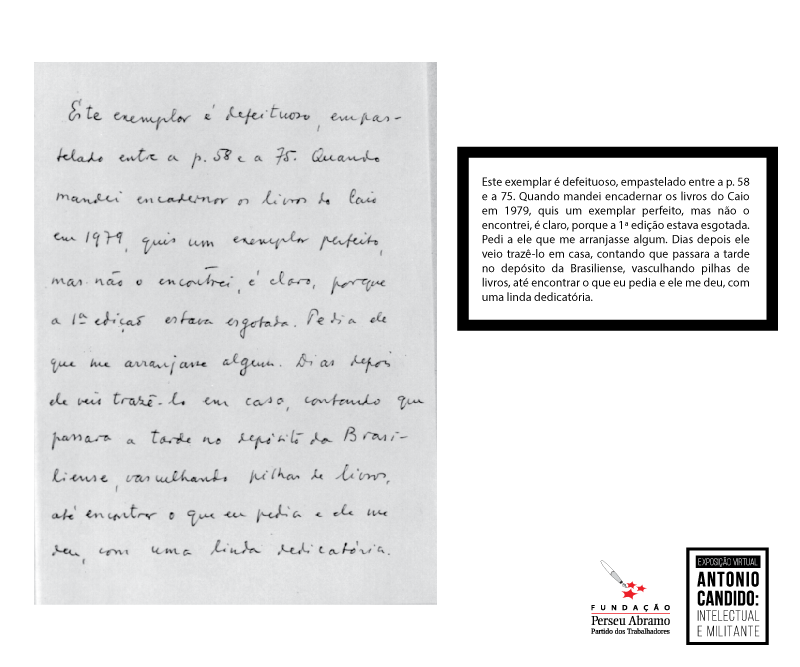 Este exemplar é defeituoso, empas-
telado entre a p. 58 e a 75. Quando
mandei encadernar os livros do Caio
em 1979, quis um exemplar perfeito,
mas não o encontrei, é claro, porque
a 1ª edição estava esgotada. Pedi a ele
que me arranjasse algum. Dias depois
ele veio trazê-lo em casa, contando que
passara a tarde no depósito da Brasi-
liense, vasculhando pilhas de livros,
até encontrar o que eu pedia e ele me
deu, com uma linda dedicatória.
Este exemplar é defeituoso, empastelado entre a p. 58
e a 75. Quando mandei encadernar os livros do Caio
em 1979, quis um exemplar perfeito, mas não o
encontrei, é claro, porque a 1ª edição estava esgotada.
Pedi a ele que me arranjasse algum. Dias depois ele
veio trazê-lo em casa, contando que passara a tarde
no depósito da Brasiliense, vasculhando pilhas de
livros, até encontrar o que eu pedia e ele me deu, com
uma linda dedicatória.
FUNDAÇÃO
Perseu Abramo
Partido dos Trabalhadores
EXPOSIÇÃO VIRTUAL
ANTONIO
CANDIDO:
INTELECTUAL
E MILITANTE